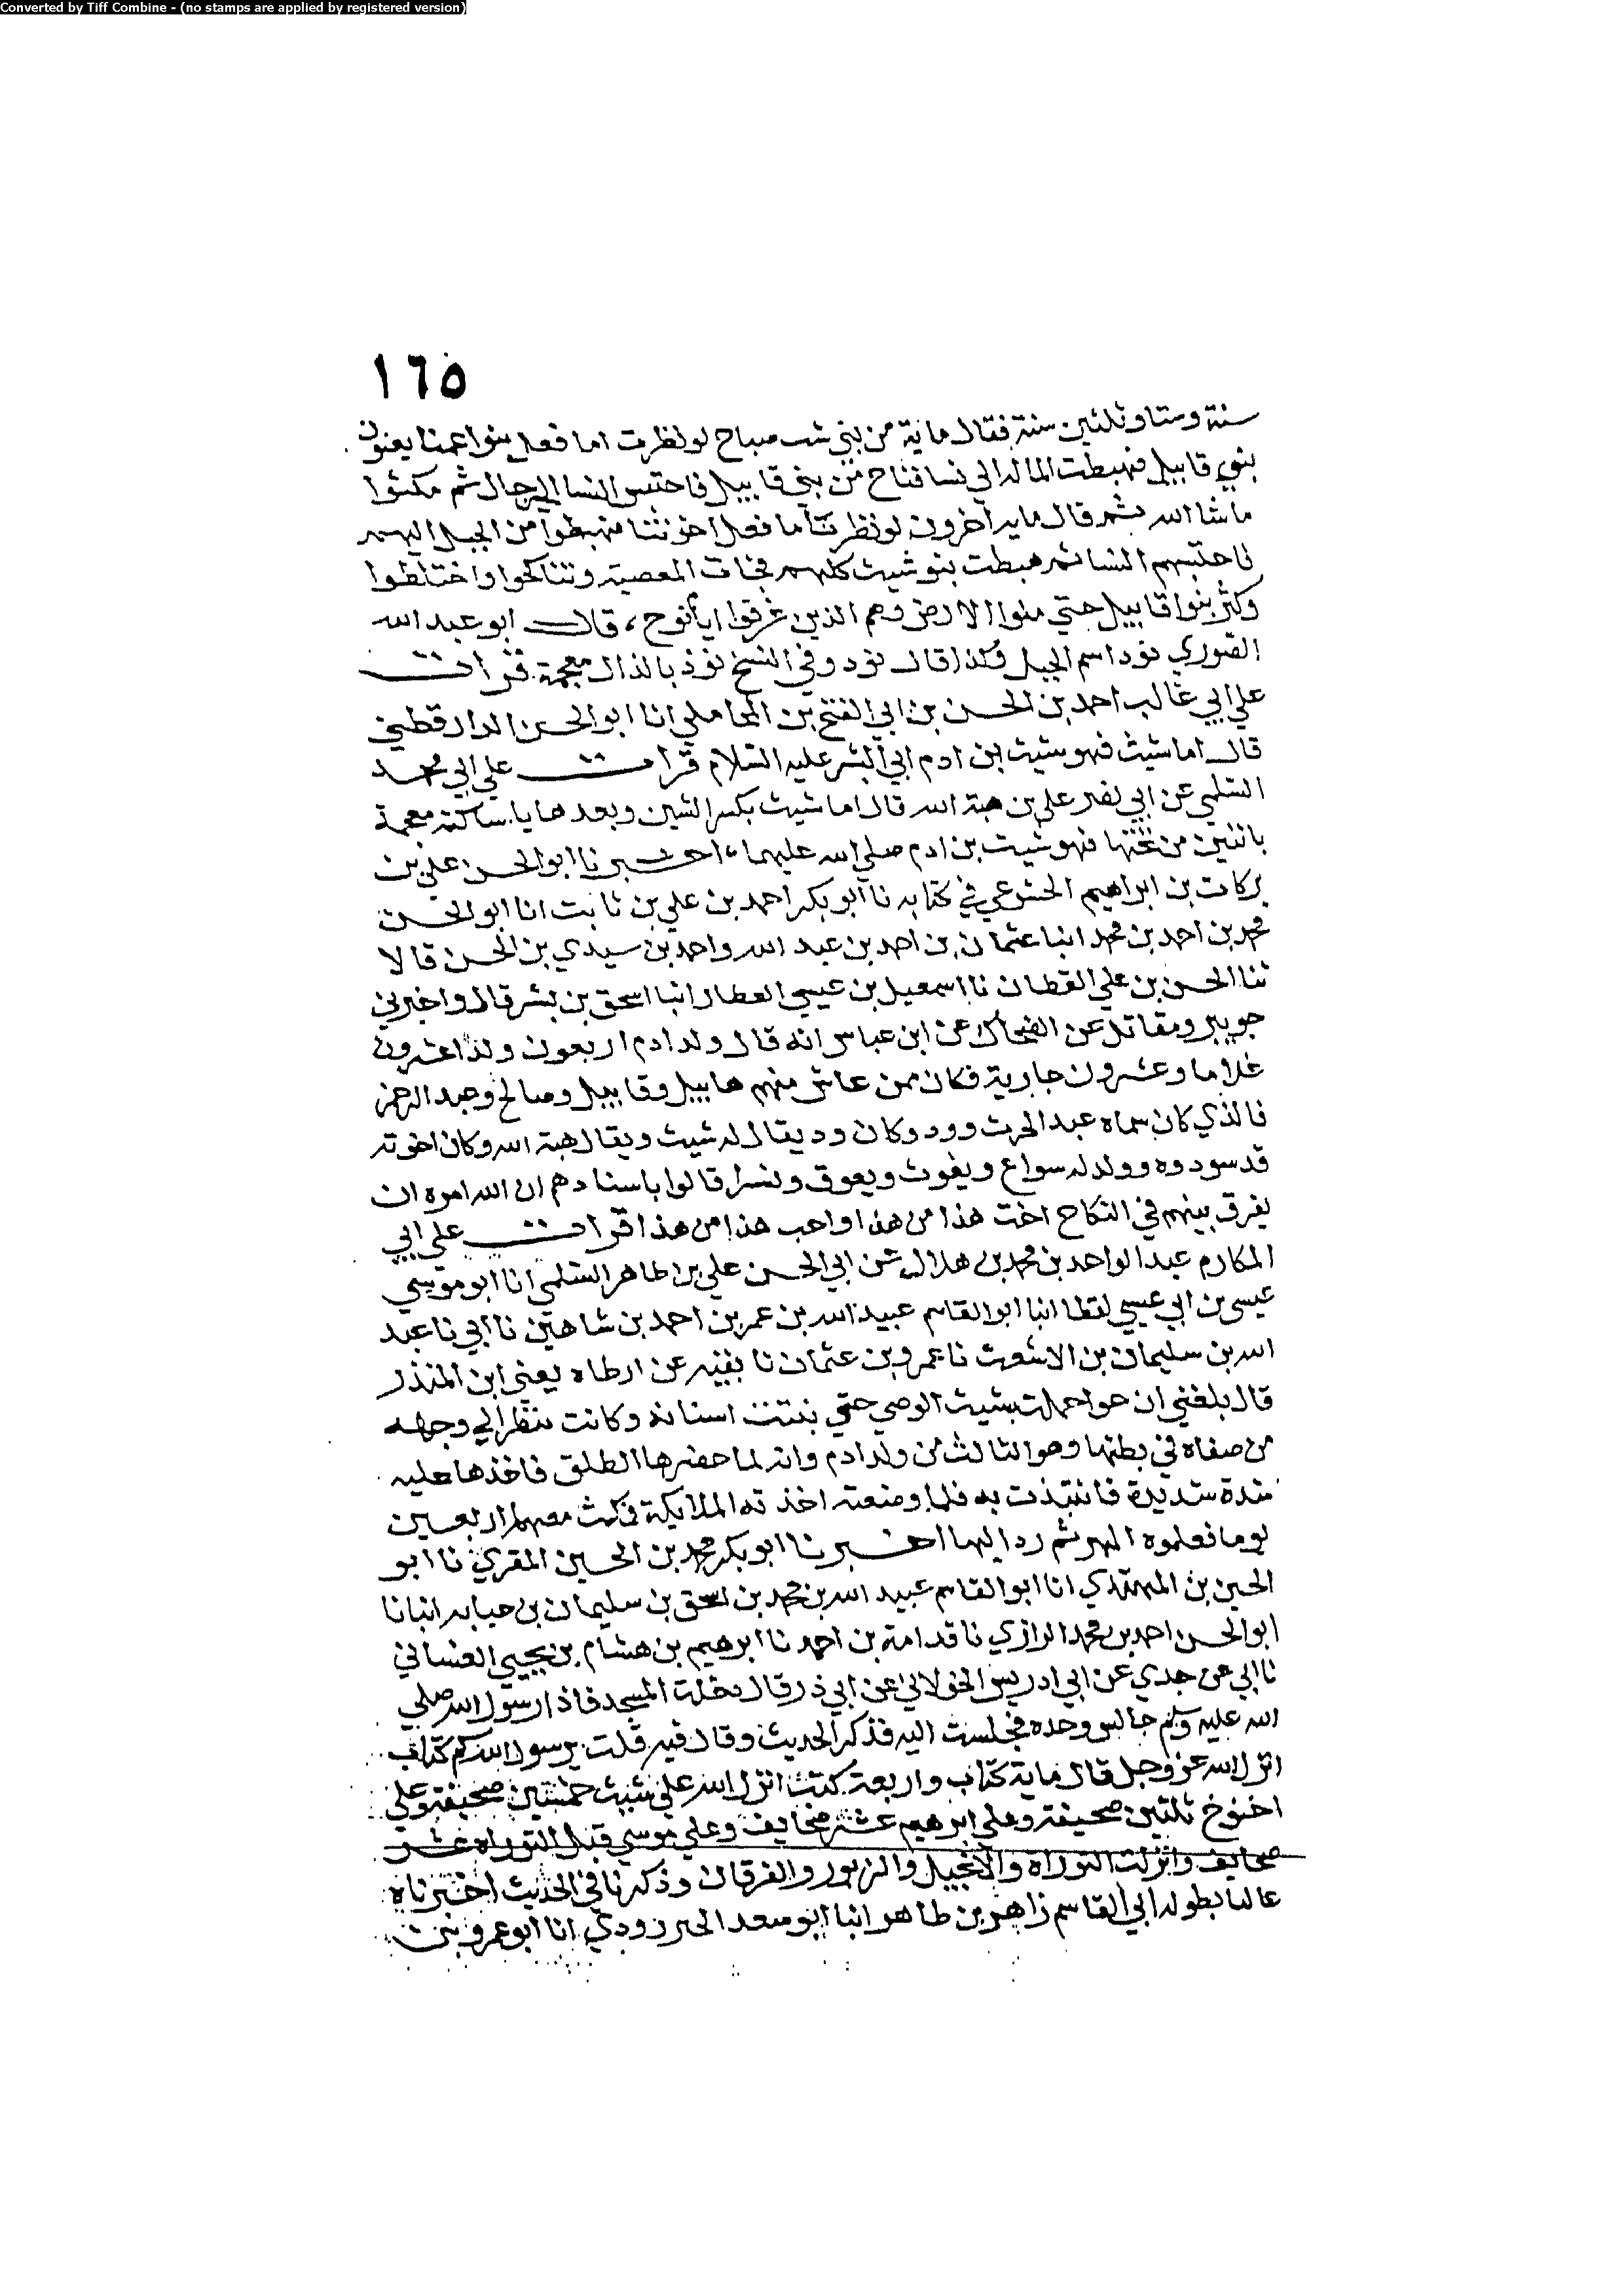 Converted by Tiff Combine - (no stamps are applied by registered version)
١٦٥
سنة وستا وثلثين سنة فقال ماية من بني شيث صباح لو نظرت اما فعل بنوا عمنا يعنون
بنوي قابيل فهبطت الماله الى نسا قباح من بني قابيل فاحتبس النسا الرجال ثم مكثوا
ماشا الله ثم قال مايه آخرون لو نظرتا ما فعل اخوتنا فهبطوا من الجبل اليهم
فاحتبسهم النسا ثم هبطت بنو شيث كلهم فجات المعصية وتناكحوا واختلطوا
وكثر بنوا قابيل حتي ملوا الارض وهم الذين غرقوا ايام نوح، قال ابو عبد الله
الصوري نود اسم الجبل وكذا قال نود وفي النسخ نوذ بالذال معجمة قرات
علي ابي غالب احمد بن الحسن بن ابي الفتح بن المحاملي انا ابو الحسن الدارقطني
قال اما شيث فهو شيث ابن ادم ابي البشر عليه السلام قرات علي ابي محمد
السلمي عن ابي نصر علي بن هبة الله قال اما شيث بكسر الشين وبعدها يا ساكنة معجمة
باثنتين من تحتها فهو شيث بن ادم صلي الله عليهما، اخبرنا ابو الحسن علي بن
بركات بن ابراهيم الخشوعي في كتابه نا ابو بكر احمد بن علي بن ثابت انا ابو الحسن
محمد بن احمد بن محمد ابنا عثمان بن احمد بن عبد الله واحمد بن سيدي بن الحسن قالا
ثنا الحسن بن علي القطان نا اسمعيل بن عيسي العطار انبا اسحق بن بشر قال واخبرني
جويبر ومقاتل عن الضحاك عن ابن عباس انه قال ولد ادم اربعون ولدا عشرون
غلاما وعشرون جارية فكان ممن عاش منهم هابيل وقابيل وصالح وعبد الرحمن
فالذي كان سماه عبد الحرث وود وكان ود يقال له شيث ويقال هبة الله وكان اخوته
قد سودوه وولد له سواع ويغوث ويعوق ونسرا قالوا باسنادهم ان الله امره ان
يفرق بينهم في النكاح اخت هذا من هذا واحب هذا من هذا قرات علي ابي
المكارم عبد الواحد بن محمد بن هلال عن ابي الحسن علي بن طاهر السلمي انا ابو موسي
عيسى بن ابي عيسي لقطا انبا ابو القاسم عبيد الله بن عمر بن احمد بن شاهين نا ابي نا عبد
الله بن سليمان بن الاشعث نا عمرو بن عثمان نا بقيه عن ارطاه يعني ابن المنذر
قال بلغني ان حوا حملت بشيث الوصي حتي نبتت اسنانه وكانت تنظر الي وجهه
من صفاه في بطنها وهو الثالث من ولد ادم وانه لما حضرها الطلق فاخذها عليه
شدة شديدة فانتبذت به فلما وضعته اخذته الملايكة فمكث معهم اربعين
يوما فعلموه المهر ثم رد اليها اخبرنا ابو بكر محمد بن الحسين المقري نا ابو
الحسين بن المهتدي انا ابو القاسم عبيد الله بن محمد بن اسحق بن سليمان بن حبابه انبانا
ابو الحسن احمد بن محمد الرازي نا قدامة بن احمد نا ابرهيم بن هشام بن يحيي الغساني
نا ابي عن جدي عن ابي ادريس الخولاني عن ابي ذر قال دخلت المسجد فاذا رسول الله صلي
الله عليه وسلم جالس وحده فجلست اليه فذكر الحديث وقال فيه قلت يرسول الله كم كتاب
انزل الله عز وجل قال ماية كتاب واربعة كتب انزل الله علي شيث خمسين صحيفة وعلي
اخنوخ ثلثين صحيفة وعلي ابرهيم عشر صحايف وعلي موسي قبل التوراه عشر
صحايف وانزلت التوراة والانجيل والزبور والفرقان وذكرنا في الحديث اخبرناه
عاليا بطوله ابي القاسم زاهر بن طاهر انبا ابو سعد الجنزرودي انا ابو عمرو بن